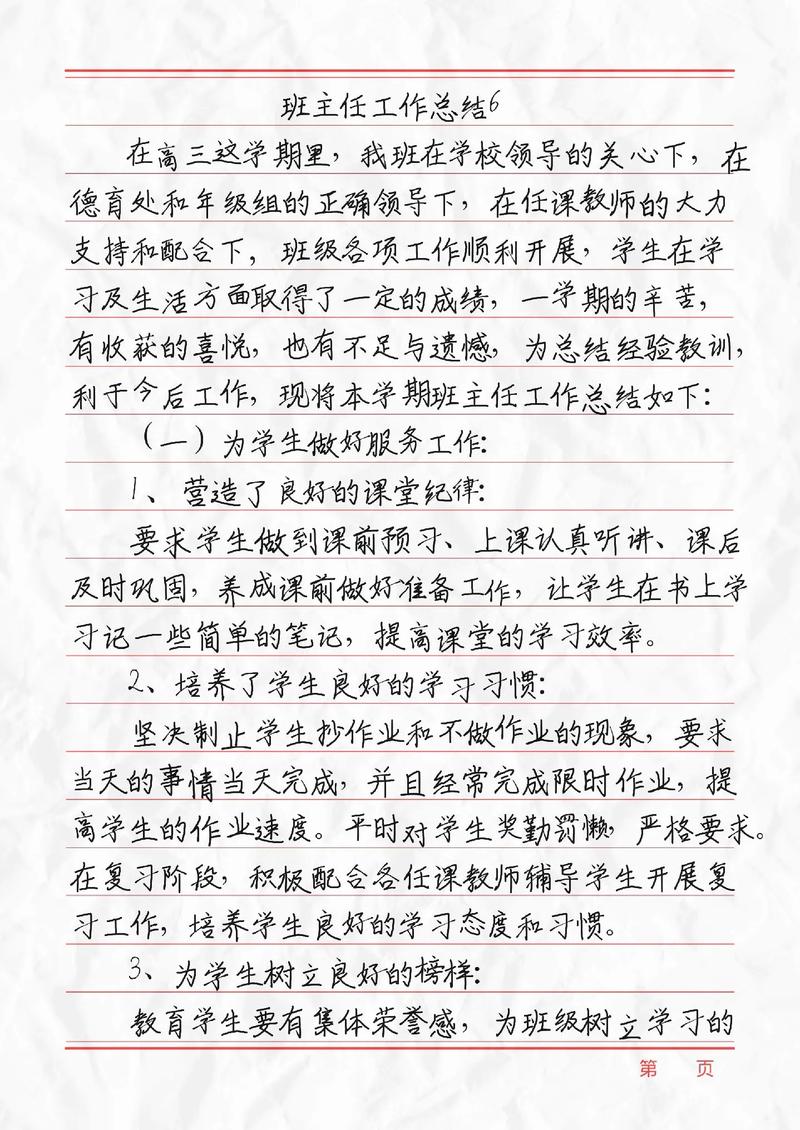 班主任工作总结6
在高三这学期里，我班在学校领导的关心下，在
德育处和年级组的正确领导下，在任课教师的大力
支持和配合下，班级各项工作顺利开展，学生在学
习及生活方面取得了一定的成绩，一学期的辛苦，
有收获的喜悦，也有不足与遗憾，为总结经验教训，
利于今后工作，现将本学期班主任工作总结如下：
（一）为学生做好服务工作：
1、营造了良好的课堂纪律：
要求学生做到课前预习、上课认真听讲、课后
及时巩固，养成课前做好准备工作，让学生在书上学
习记一些简单的笔记，提高课堂的学习效率。
2、培养了学生良好的学习习惯：
坚决制止学生抄作业和不做作业的现象，要求
当天的事情当天完成，并且经常完成限时作业，提
高学生的作业速度。平时对学生奖勤罚懒，严格要求。
在复习阶段，积极配合各任课教师辅导学生开展复
习工作，培养学生良好的学习态度和习惯。
3、为学生树立良好的榜样：
教育学生要有集体荣誉感，为班级树立学习的
第 页